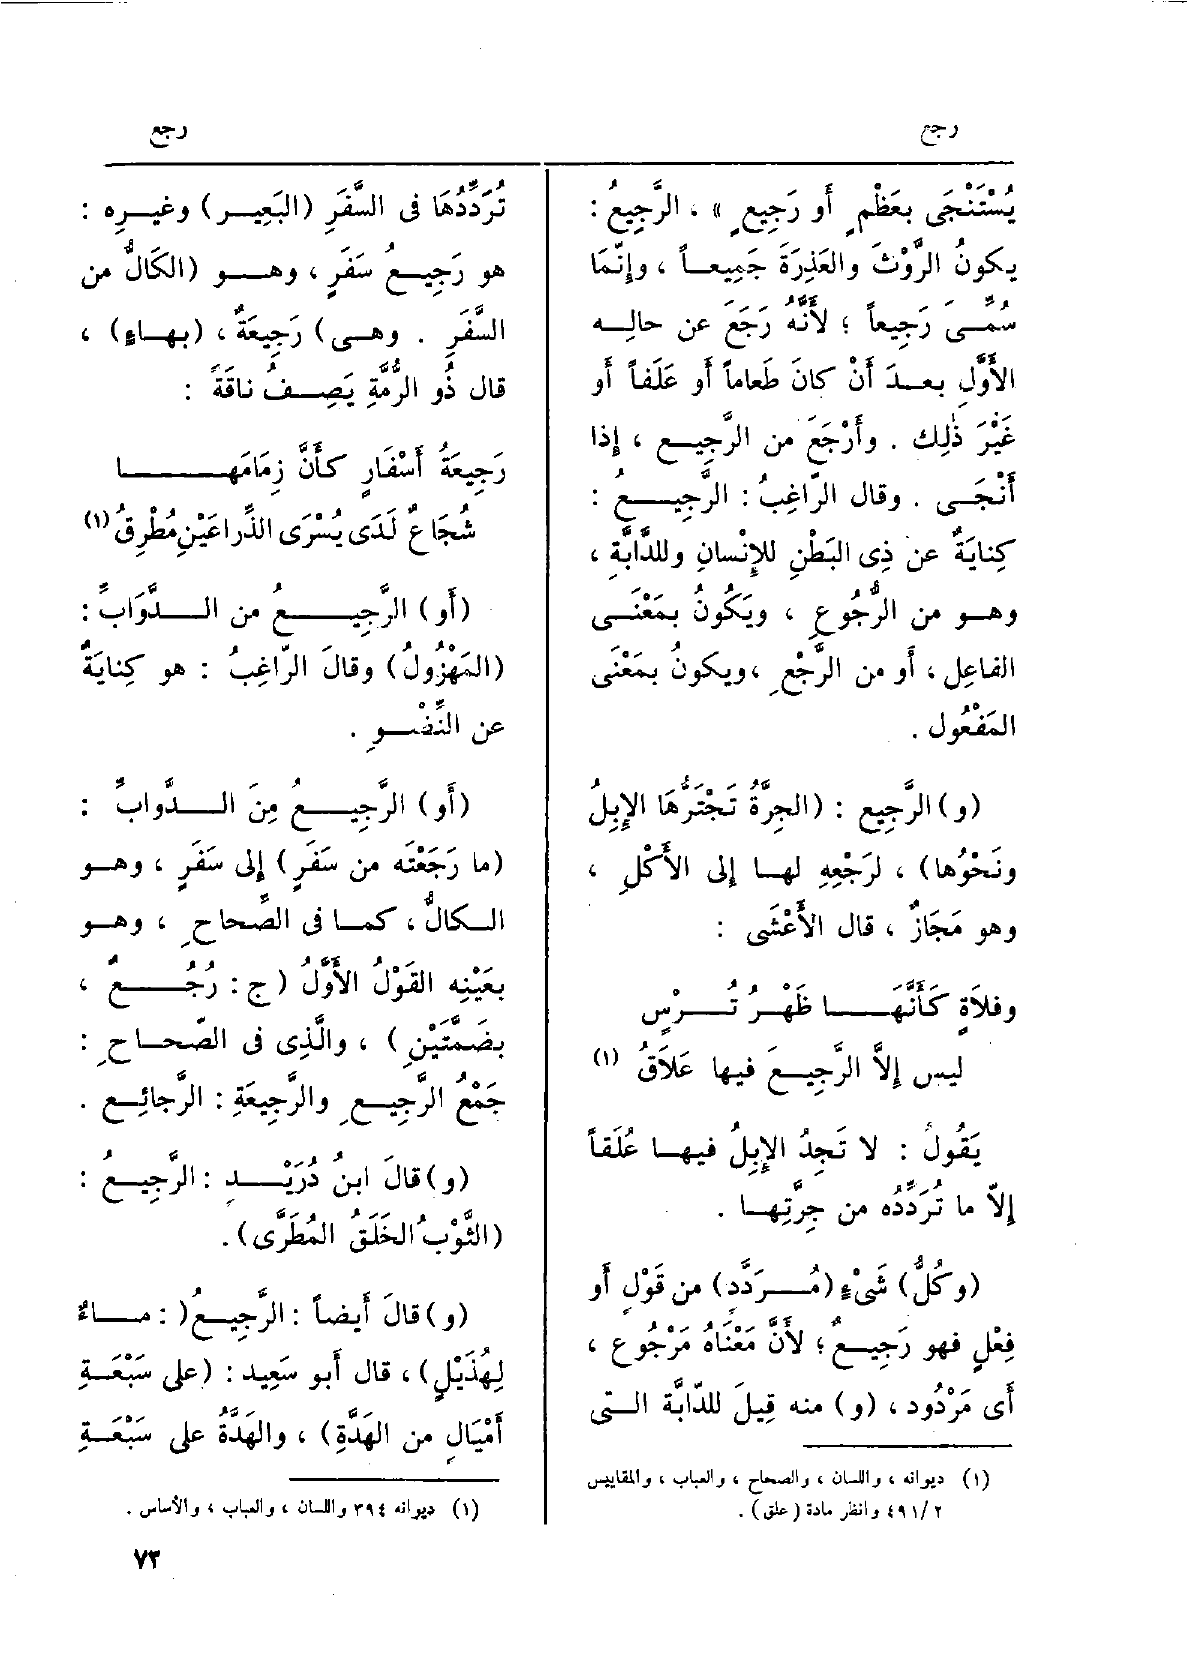 رجع
رجع
يُسْتَنْجَى بعَظْمٍ أَو رَجِيعٍ » ، الرَّجِيعُ :
يكونُ الرَّوْثَ والعَذِرَةَ جَمِيعاً ، وإِنَّمَا
سُمِّىَ رَجِيعاً ؛ لأَنَّهُ رَجَعَ عن حالِه
الأَوَّلِ بعدَ أَنْ كانَ طَعاماً أَو عَلَفاً أَو
غَيْرَ ذٰلِك . وأَرْجَعَ من الرَّجِيع ، إِذا
أَنْجَى . وقال الرّاغِبُ : الرَّجِيعُ :
كِنايَةٌ عن ذِى البَطْنِ للإِنْسانِ وللدَّابَّةِ ،
وهو من الرُّجُوعِ ، ويَكُونُ بمَعْنَى
الفاعِل ، أَو من الرَّجْعِ ، ويكونُ بمَعْنَى
المَفْعُول .
(و) الرَّجِيع : (الجِرَّةُ تَجْتَرُّهَا الإِبِلُ
ونَحْوُها) ، لرَجْعِهِ لها إِلى الأَكْلِ ،
وهو مَجَازٌ ، قال الأَعْشَى :
وفلاَةٍ كَأَنَّهَا ظَهْرُ تُرْسٍ
ليس إِلاَّ الرَّجِيعَ فيها عَلاَقُ (١)
يَقُولُ : لا تَجِدُ الإِبِلُ فيها عُلَقاً
إِلاّ ما تُرَدِّدُه من جِرَّتِها .
(وكُلُّ) شَىْءٍ (مُرَدَّدٍ) من قَوْلٍ أَو
فِعْلٍ فهو رَجِيعٌ ؛ لأَنَّ مَعْنَاهُ مَرْجُوع ،
أَى مَرْدُود ، (و) منه قِيلَ للدّابَّة التى
(١) ديوانه ، واللسان ، والصحاح ، والعباب ، والمقاييس
٤٩١/٢ وانظر مادة (علق) .
تُرَدِّدُهَا فى السَّفَرِ (البَعِير) وغيرِه :
هو رَجِيعُ سَفَرٍ ، وهو (الكَالُّ من
السَّفَرِ . وهى) رَجِيعَةٌ ، (بهاءٍ) ،
قال ذُو الرُّمَّةِ يَصِفُ ناقَةً :
رَجِيعَةُ أَسْفَارٍ كأَنَّ زِمَامَها
شُجَاعٌ لَدَى يُسْرَى الذِّراعَيْنِ مُطْرِقُ (١)
(أَو) الرَّجِيعُ من الدَّوَابِّ :
(المَهْزُولُ) وقالَ الرّاغِبُ : هو كِنايَةٌ
عن النِّضْوِ .
(أَو) الرَّجِيعُ مِنَ الدَّوابِّ :
(ما رَجَعْتَه من سَفَرٍ) إِلى سَفَرٍ ، وهو
الكالُّ ، كما فى الصّحاحِ ، وهو
بعَيْنِه القَوْلُ الأَوَّلُ (ج : رُجُعٌ ،
بضَمَّتَيْنِ) ، والَّذِى فى الصّحاحِ :
جَمْعُ الرَّجِيعِ والرَّجِيعَةِ : الرَّجائِع .
(و) قالَ ابنُ دُرَيْدٍ : الرَّجِيعُ :
(الثَّوْبُ الخَلَقُ المُطَرَّى) .
(و) قالَ أَيضاً : الرَّجِيعُ ( : ماءٌ
لِهُذَيْلٍ) ، قال أَبو سَعِيد : (على سَبْعَةِ
أَمْيَالٍ من الهَدَّةِ) ، والهَدَّةُ على سَبْعَةِ
(١) ديوانه ٣٩٤ واللسان ، والعباب ، والأساس .
٧٣